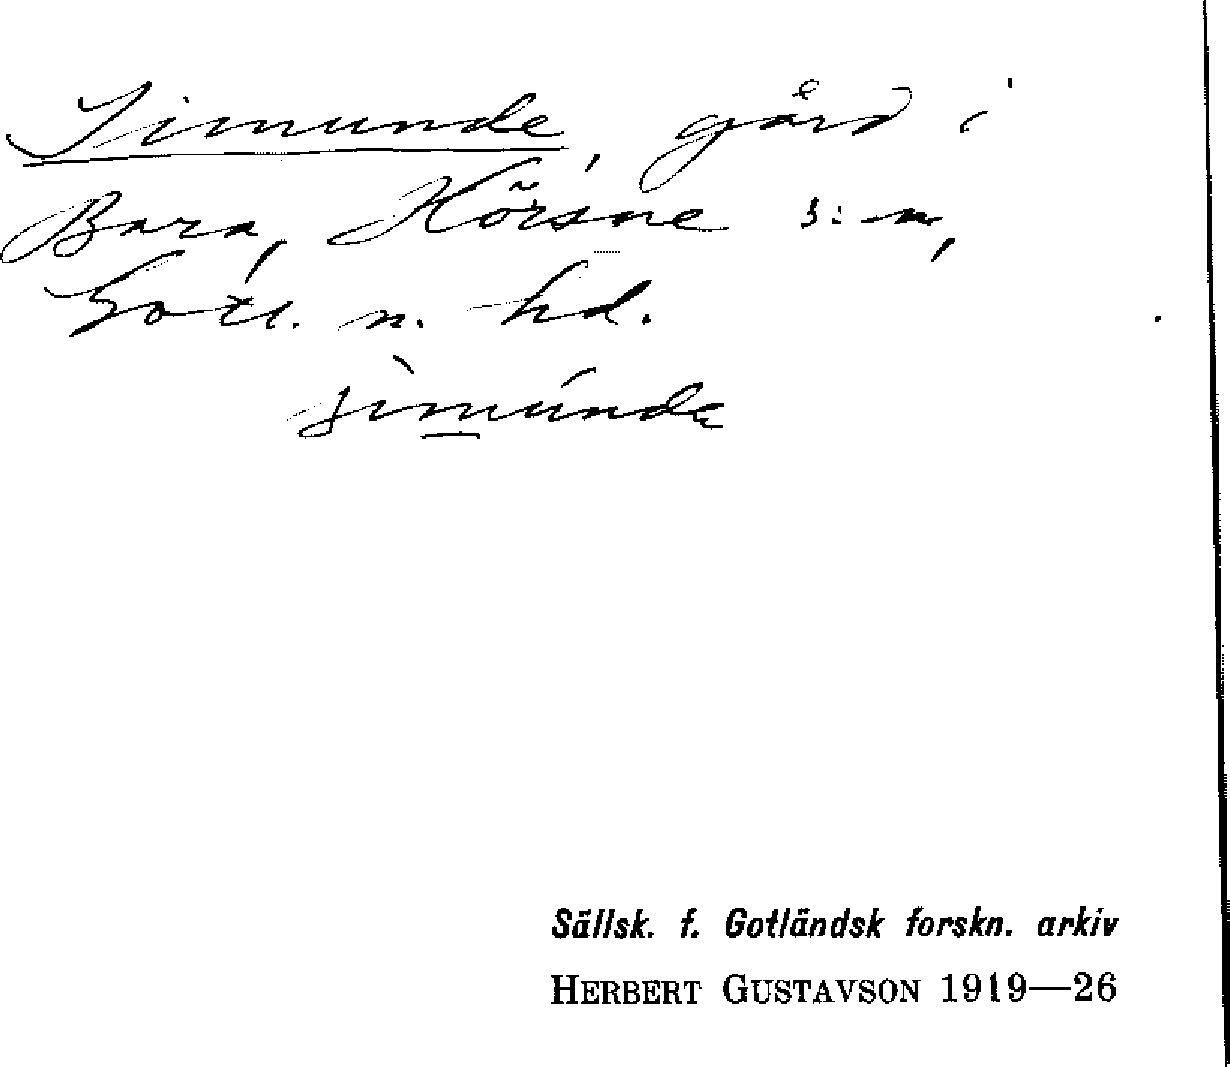 Simunde, gård i
Bara, Hörsne s:n,
Gotl. n. hd.
sìmúnde
Sällsk. f. Gotländsk forskn. arkiv
HERBERT GUSTAVSON 1919—26